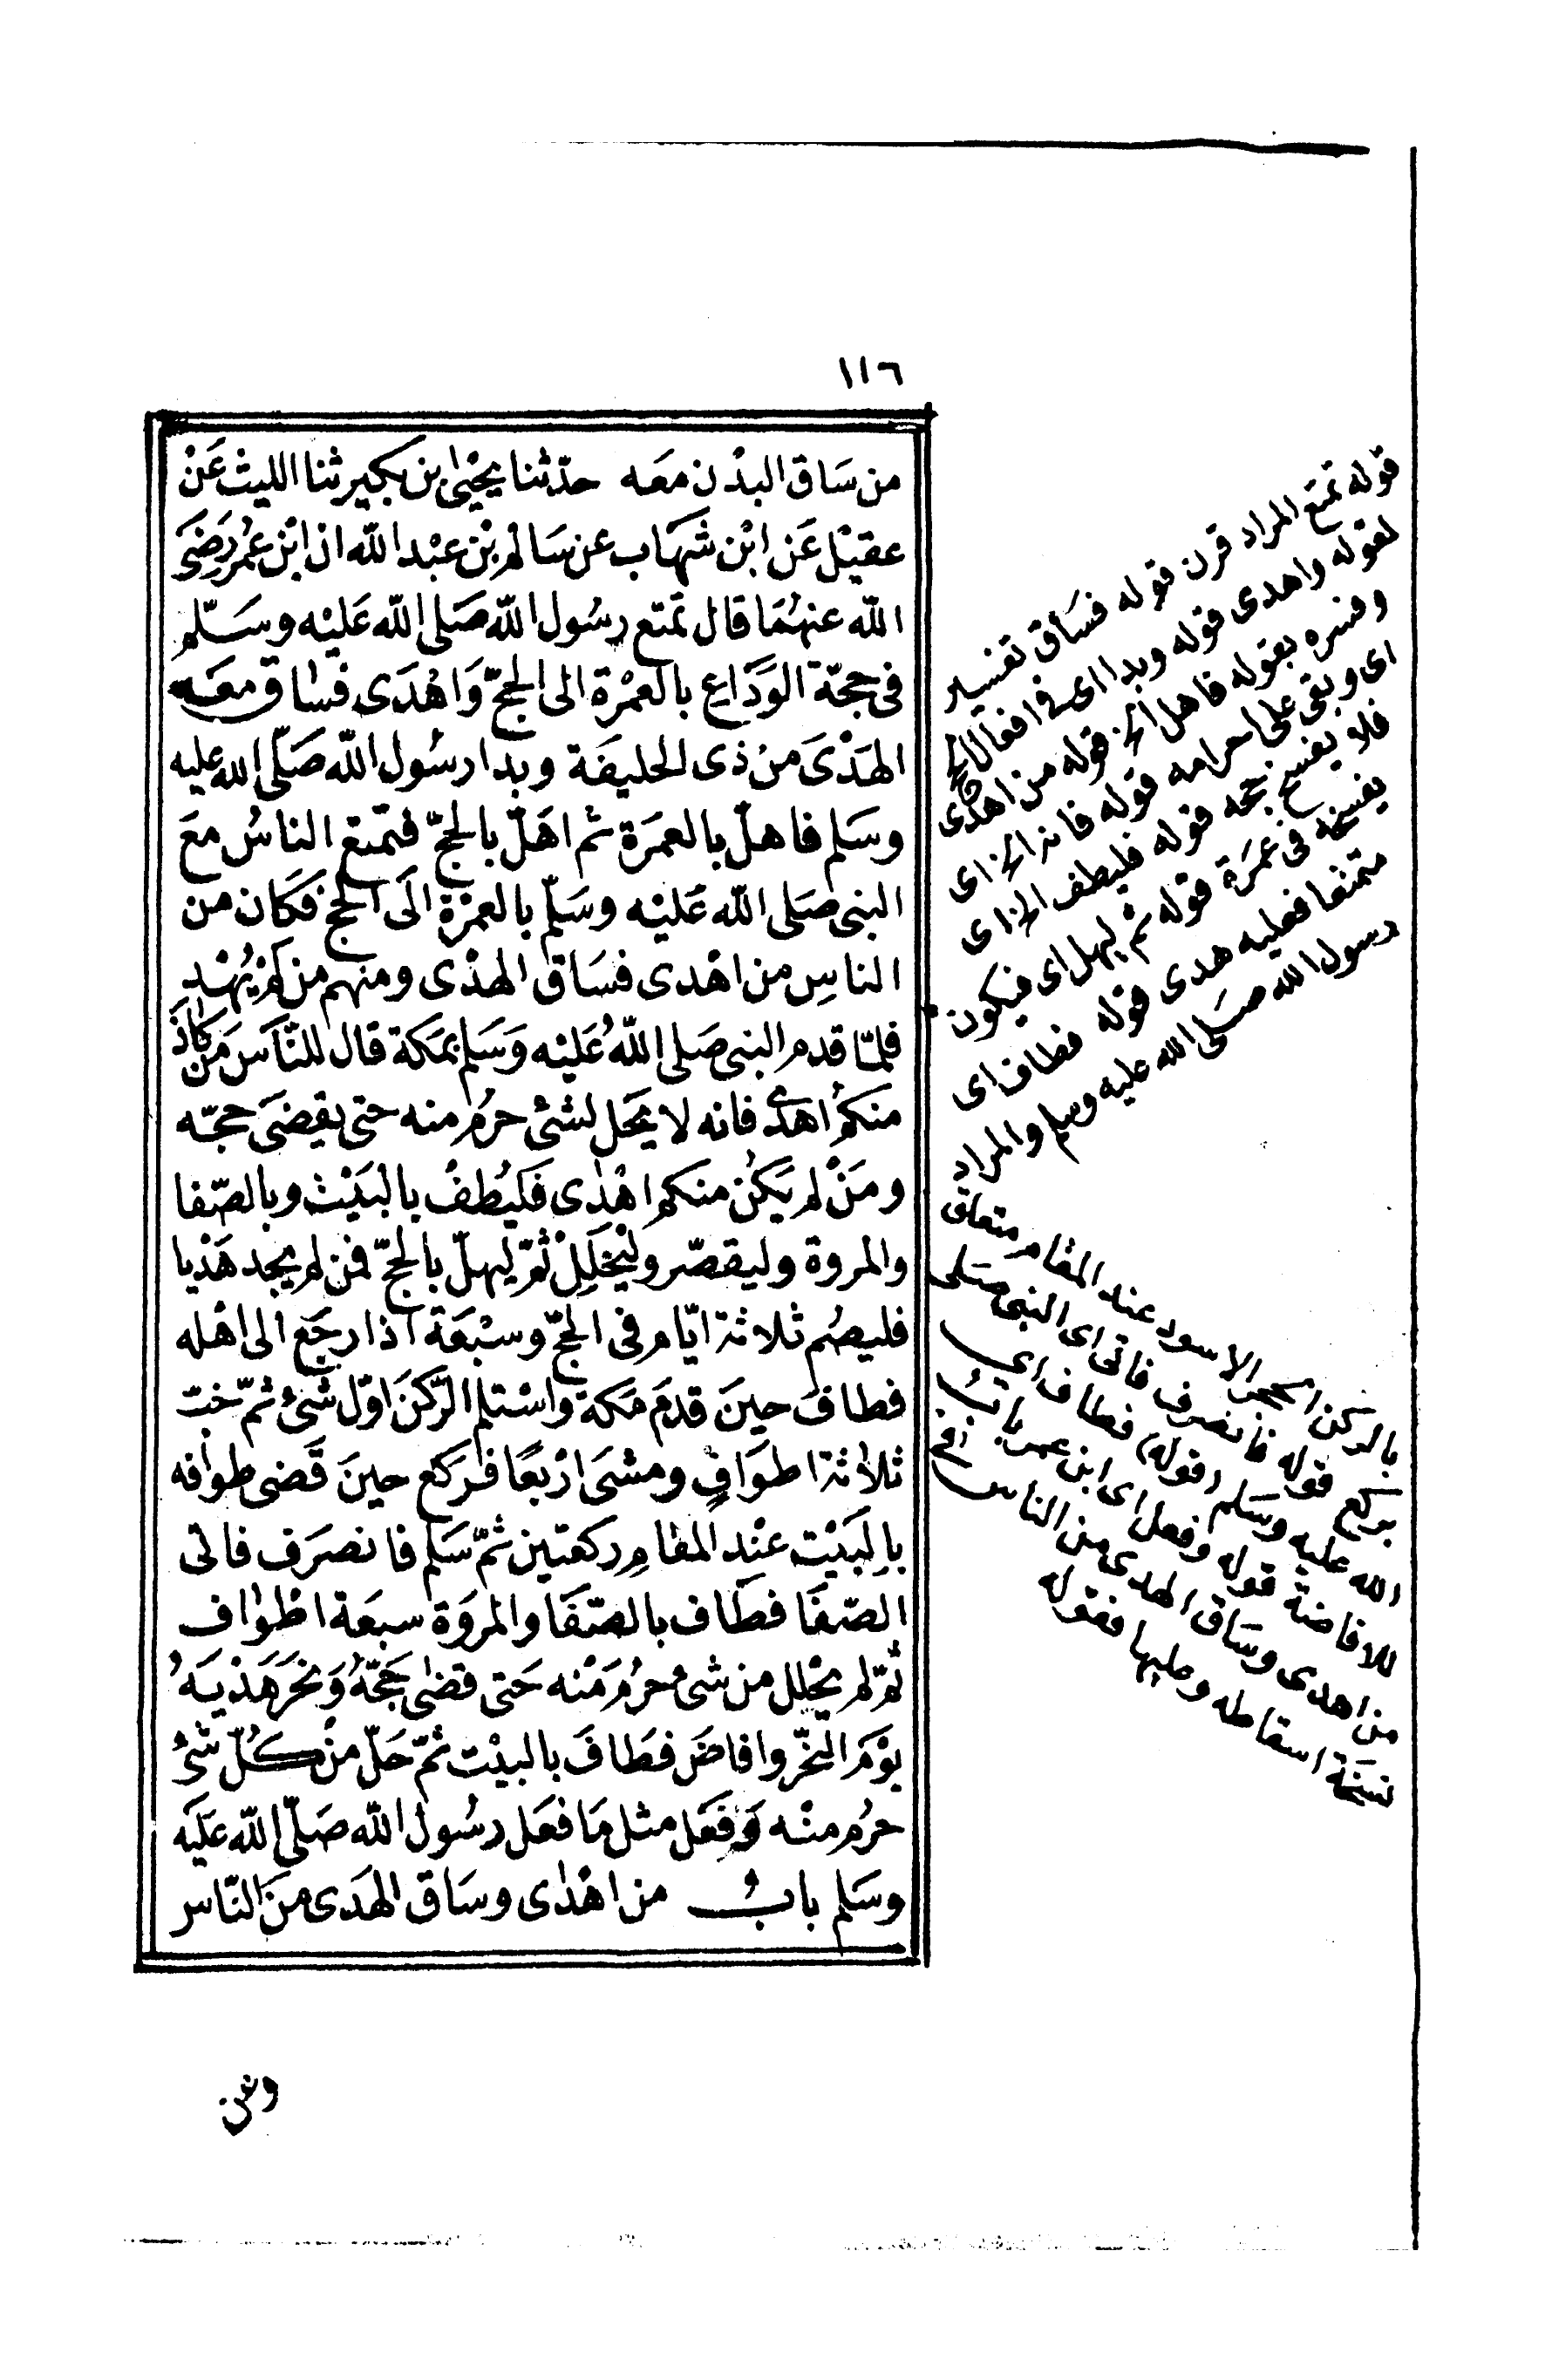 ١١٦
من سَاق البدْن معَه حدّثنا يحْيٰى بن بكير ثنا الليث عَنْ
عقيْل عَن ابْن شهَاب عن سَالم بْن عبْد الله ان ابْن عمُر رَضىَ
الله عنهُمَا قال تمَتع رسُول اللّه صَلى الله عَليْه وسَلّم
فى حجّة الوَدَاع بالعمْرة الى الحجّ وَاهْدَى فسَاق معَه
الهدْىَ من ذى الحليفَة وبدا رسُول الله صَلّى الله عليه
وسَلم فاهلّ بالعمَرة ثم اهَلّ بالحجّ فتمتع الناسُ معَ
النبى صَلى الله عَليْه وسَلّم بالعمْرَة الَى الحجّ فكَان من
الناسِ من اهْدى فسَاق الهدْى ومنهم من لمْ يُهْدِ
فلمّا قدم النبى صَلى اللّهُ عَليْه وَسَلم بمَكة قال للنَّاسَ مَن كاَنَ
منكمُ اهدٰى فانه لا يحَل لشئ حرُم منه حتى يقضىَ حجّه
ومَنْ لم يَكُن منكم اهْدٰى فَليُطفْ بالْبَيْتْ وبالصّفا
والمروة وليقصّر وليْحَلِلْ ثمّ ليهلّ بالحجّ فمن لم يجد هَدْيا
فليصُم ثلاثة ايّام فى الحجّ وسبْعَة اذا رجَع الى اهْله
فطافَ حينَ قدمَ مَكة واسْتلم الرّكنَ اوّل شئ ثمّ خبّ
ثلاثة اطوَافٍ ومشىَ ارْبعًا فركع حينَ قَضى طوافه
بالبَيْت عنْد المقام ركعتين ثمّ سَلم فانصرَف فاتى
الصّفَا فطَاف بالصّفَا والمروَة سبعَة اطْواف
ثمّ لم يحْلل من شئ حرُم مَنْه حَتى قضٰى حَجّهُ وَنحَرَ هَدْيَهُ
يوْمَ النحّر وافاضَ فطَافَ بالبيْت ثمّ حَلّ مِنْ كُلّ شئْ
حرُم منْه وَفعَل مثل مَا فعَل رسُول الله صَلّى الله عَليَه
وسَلم بابُ من اهْدٰى وسَاق الهدَى منَ النّاس
قوله تمتع المراد قرن قوله فسَاق تفسير
لقوله واهدى قوله وبدا اى فى افعال الحج
وفسره بقوله فاهل الخ قوله من اهدى
اى وبقى على احرامه قوله فانه الخ اى
فلا يفسخ حجه قوله فليطف الخ اى
يفسخه فى عمرَة قوله ثم ليهل اى فيكون
متمتعا فعليه هدى قوله فطاف اى
رسول الله صَلى الله عليه وسلم والمراد
بالركن الحجر الاسود عند المقام متعلق
بركع قوله فانصرف فاتى اى النبى صَلى
الله عليه وسَلم (قوله) فطاف اى
للافاضة قوله وفعل اى ابن عمر باب
من اهدى وسَاق الهدى من الناس
نسَخة اسقاطه وعليها فقوله